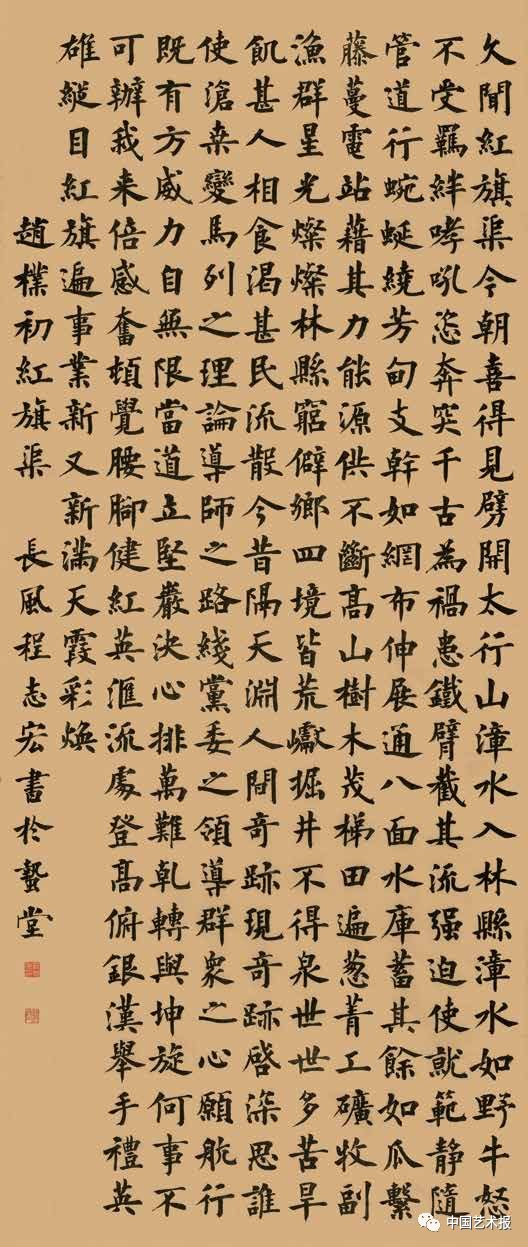 久聞紅旗渠今朝喜得見劈開太行山漳水入林縣漳水如野牛怒
不受羈絆哮吼恣奔突千古為禍患鐵臂截其流强迫使就範静隨
管道行蜿蜒繞芳甸支幹如網布伸展通八面水庫蓄其餘如瓜繫
藤蔓電站藉其力能源供不斷高山樹木茂梯田遍葱菁工礦牧副
漁群星光燦燦林縣窮僻鄉四境皆荒巘掘井不得泉世世多苦旱
飢甚人相食渴甚民流散今昔隔天淵人間奇跡現奇跡啓深思誰
使滄桑變馬列之理論導師之路綫黨委之領導群衆之心願航行
既有方威力自無限當道立堅巖決心排萬難乹轉與坤旋何事不
可辦我来倍感奮頓覺腰腳健紅英滙流處登高俯銀漢舉手禮英
雄縱目紅旗遍事業新又新滿天霞彩焕
趙樸初紅旗渠 長風程志宏書於蟄堂
中国艺术报